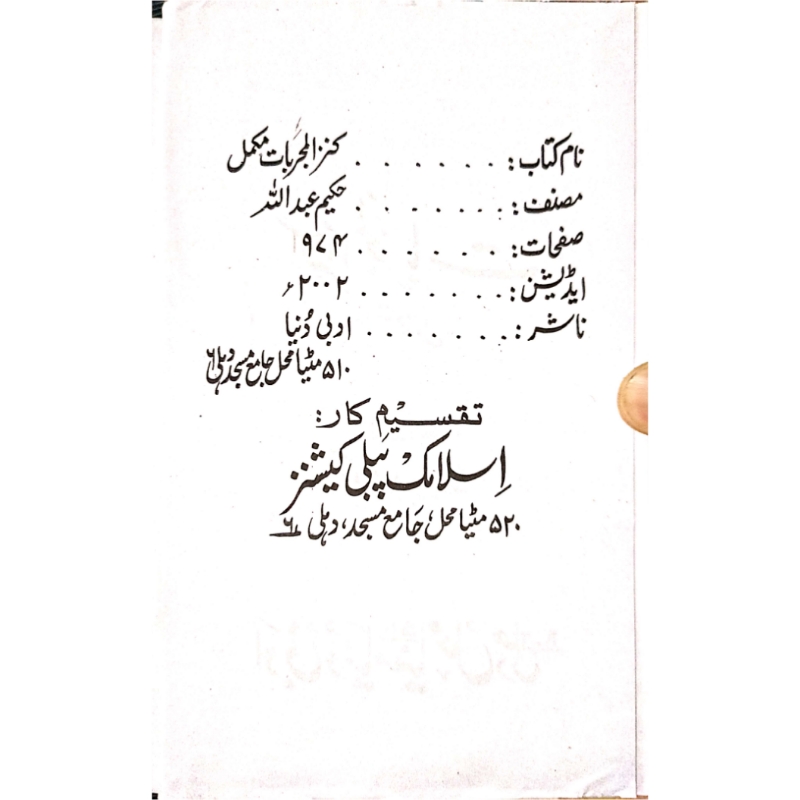 نام کتاب: . . . . . . کنز المجربات مکمل
مصنف: . . . . . . . حکیم عبداللہ
صفحات: . . . . . . ۹۷۴
ایڈیشن: . . . . . . . ۲۰۰۲ء
ناشر: . . . . . . . ادبی دُنیا
۵۱۰ مٹیا محل جامع مسجد دہلی ۶
تقسیم کار:
اِسلامک پَبلی کیشنز
۵۲۰ مٹیا محل، جَامع مَسجد، دہلی ۶